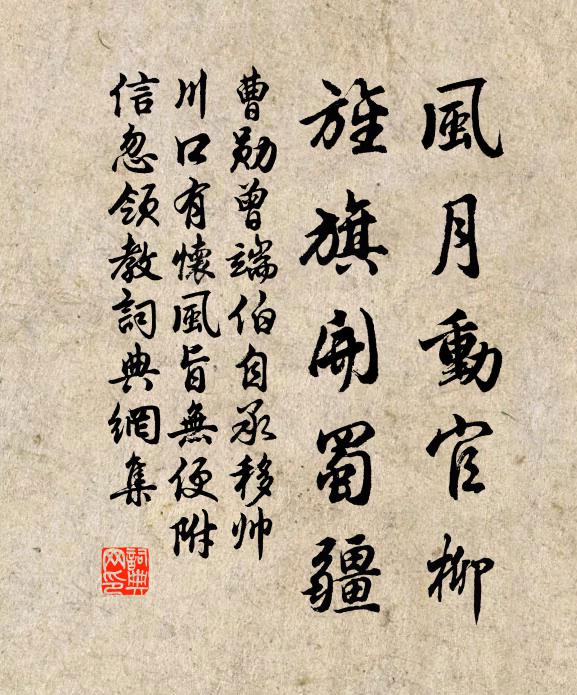 風月動官柳
旌旗開蜀疆
曹勛曾端伯自承移帅
川口有懷風旨無便附
信忽領教詞典網集
詞典网印